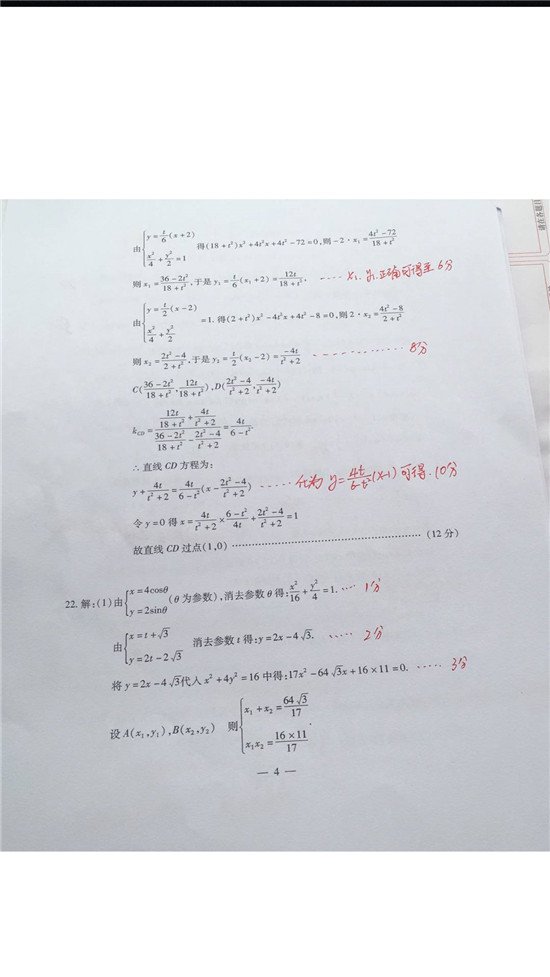 由{y=t/6(x+2) x²/4+y²/2=1 得(18+t²)x²+4t²x+4t²-72=0,则-2·x₁=(4t²-72)/(18+t²)
则x₁=(36-2t²)/(18+t²),于是y₁=t/6(x₁+2)=12t/(18+t²). ····x₁、y₁正确可得至6分
由{y=t/2(x-2) x²/4+y²/2 =1.得(2+t²)x²-4t²x+4t²-8=0,则2·x₂=(4t²-8)/(2+t²)
则x₂=(2t²-4)/(2+t²),于是y₂=t/2(x₂-2)=-4t/(t²+2) ············8分
C((36-2t²)/(18+t²),12t/(18+t²)),D((2t²-4)/(t²+2),-4t/(t²+2))
k_CD=(12t/(18+t²)+4t/(t²+2))/((36-2t²)/(18+t²)-(2t²-4)/(t²+2))=4t/(6-t²).
∴直线CD方程为:
y+4t/(t²+2)=4t/(6-t²)(x-(2t²-4)/(t²+2)) ·····化为y=4t/(6-t²)(x-1)可得.10分
令y=0得x=4t/(t²+2)×(6-t²)/4t+(2t²-4)/(t²+2)=1
故直线CD过点(1,0) ································ (12分)
22.解:(1)由{x=4cosθ y=2sinθ (θ为参数),消去参数θ得:x²/16+y²/4=1. ···1分
由{x=t+√3 y=2t-2√3 消去参数t得:y=2x-4√3. ·····2分
将y=2x-4√3代入x²+4y²=16中得:17x²-64√3x+16×11=0. ·····3分
设A(x₁,y₁),B(x₂,y₂) 则{x₁+x₂=64√3/17 x₁x₂=16×11/17.
— 4 —